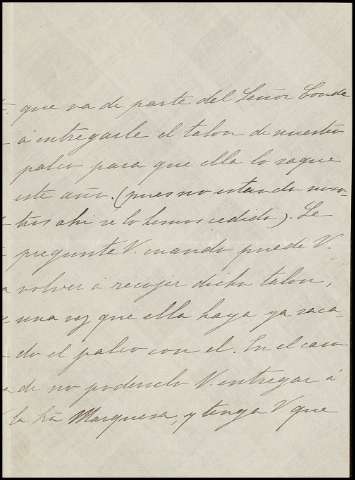 que va de parte del Señor Conde
á entregarle el talon de nuestro
palco para que ella lo saque
este año. (pues no estando noso-
tros ahi se lo hemos cedido). Le
pregunta V. cuando puede V.
volver á recojer dicho talon,
una vez que ella haya ya saca-
do el palco con el. En el caso
de no podérselo V. entregar á
la Sra Marquesa, y tenga V que